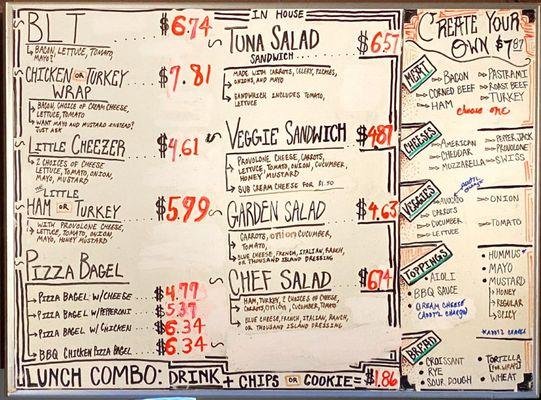 BLT $6.74
BACON, LETTUCE, TOMATO,
MAYO?
CHICKEN OR TURKEY
WRAP $7.81
BACON, CHOICE OF CREAM CHEESE,
LETTUCE, TOMATO
WANT MAYO AND MUSTARD INSTEAD?
JUST ASK
LITTLE CHEEZER $4.61
2 CHOICES OF CHEESE
LETTUCE, TOMATO, ONION,
MAYO, MUSTARD
THE LITTLE
HAM OR TURKEY $5.99
WITH PROVOLONE CHEESE,
LETTUCE, TOMATO, ONION,
MAYO, HONEY MUSTARD
PIZZA BAGEL
PIZZA BAGEL W/CHEESE $4.77
PIZZA BAGEL W/PEPPERONI $5.37
PIZZA BAGEL W/CHICKEN $6.34
BBQ CHICKEN PIZZA BAGEL $6.34
IN HOUSE
TUNA SALAD $6.57
SANDWICH
MADE WITH CARROTS, CELERY, PICKLES,
ONIONS, AND MAYO
SANDWICH INCLUDES TOMATO,
LETTUCE
VEGGIE SANDWICH $4.87
PROVOLONE CHEESE, CARROTS,
LETTUCE, TOMATO, ONION, CUCUMBER,
HONEY MUSTARD
SUB CREAM CHEESE FOR $1.50
GARDEN SALAD $4.63
CARROTS, onion CUCUMBER,
TOMATO,
BLUE CHEESE, FRENCH, ITALIAN, RANCH,
OR THOUSAND ISLAND DRESSING
CHEF SALAD $6.74
HAM, TURKEY, 2 CHOICES OF CHEESE,
CARROTS, onion, CUCUMBER, TOMATO
BLUE CHEESE, FRENCH, ITALIAN, RANCH,
OR THOUSAND ISLAND DRESSING
LUNCH COMBO: DRINK + CHIPS OR COOKIE = $1.86
CREATE YOUR
OWN $7.87
MEAT
BACON
CORNED BEEF
HAM
PASTRAMI
ROAST BEEF
TURKEY
choose one
CHEESES
AMERICAN
CHEDDAR
MOZZARELLA
PEPPER JACK
PROVOLONE
SWISS
VEGGIES
AVOCADO
CARROTS
CUCUMBER
LETTUCE
ONION
TOMATO
TOPPINGS
AIOLI
BBQ SAUCE
CREAM CHEESE
(ADDT'L CHARGE)
HUMMUS
MAYO
MUSTARD
HONEY
REGULAR
SPICY
BREAD
CROISSANT
RYE
SOUR DOUGH
TORTILLA
(FOR WRAP)
WHEAT